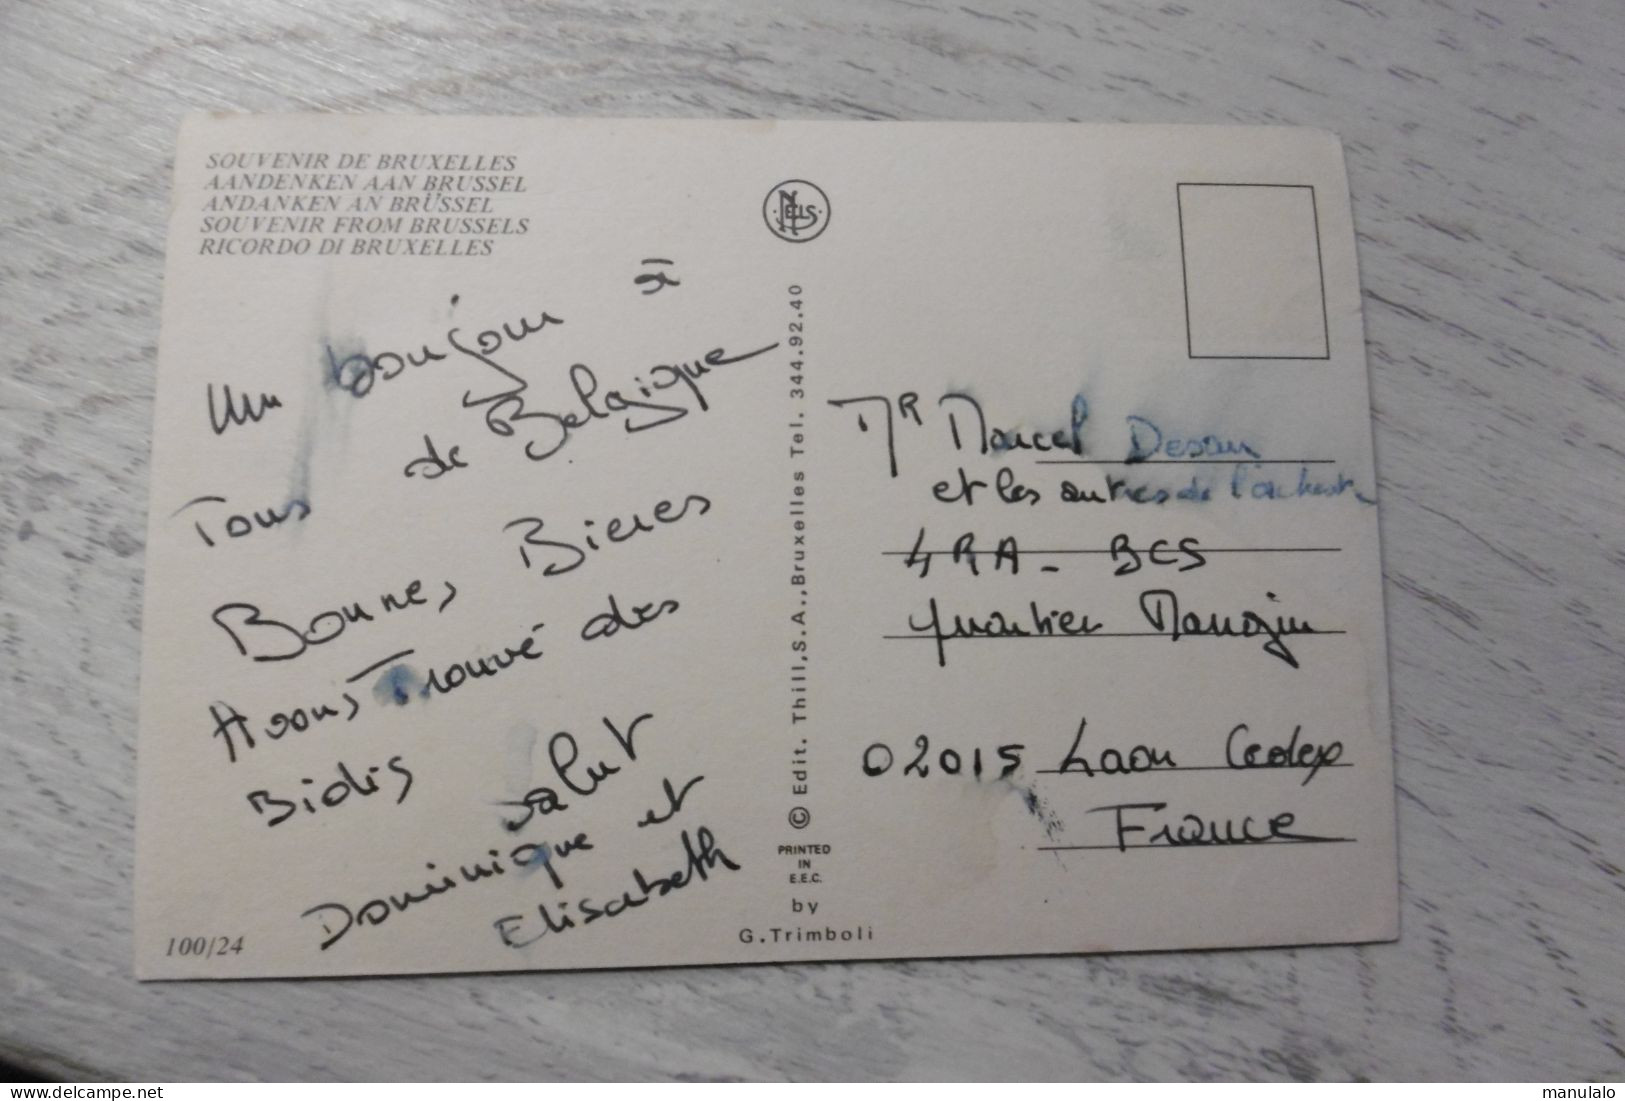 SOUVENIR DE BRUXELLES
AANDENKEN AAN BRUSSEL
ANDANKEN AN BRÜSSEL
SOUVENIR FROM BRUSSELS
RICORDO DI BRUXELLES
Un bonjour à
Tous de Belgique
Bonnes Bieres
Avons Trouvé des
Bidis
salut
Dominique et
Elisabeth
100/24
NELS
© Edit. Thill, S.A., Bruxelles Tel. 344.92.40
PRINTED
IN
E.E.C.
by
G. Trimboli
Mr Marcel
et les autres de l'orchestre
4 RA - BCS
Quartier Mangin
02015 Laon Cedex
France
www.delcampe.net
manulalo